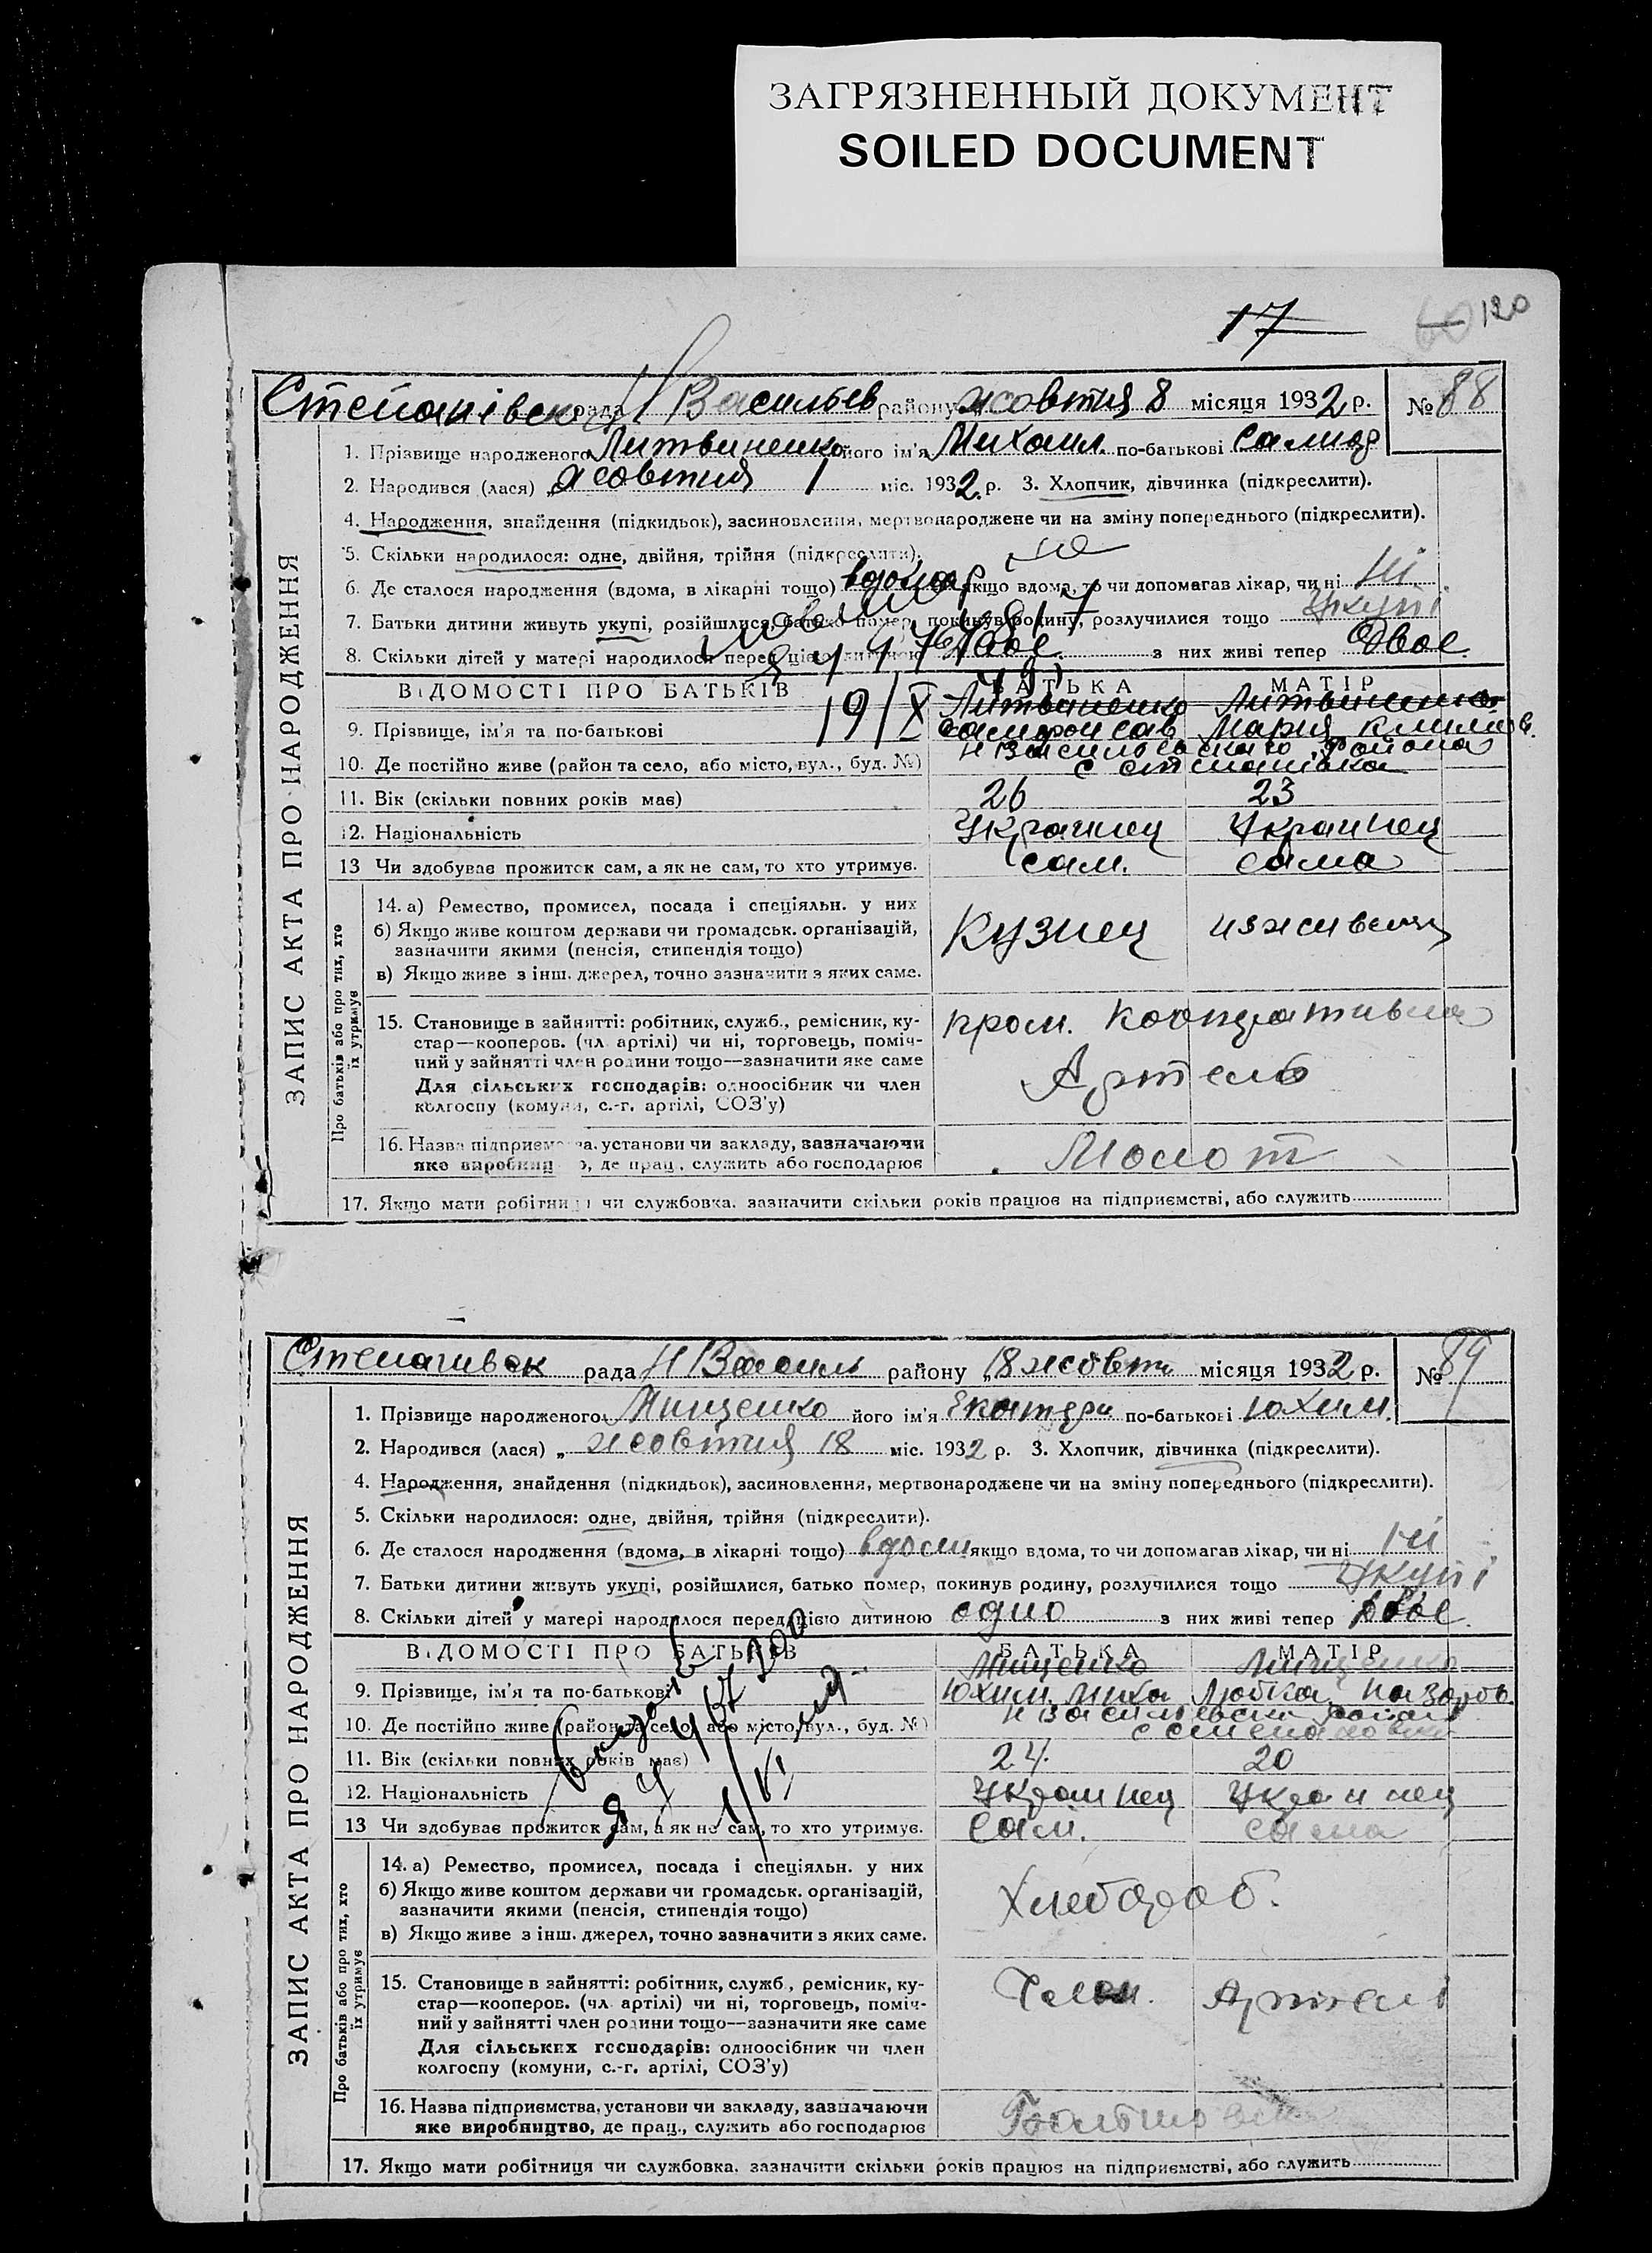 ЗАГРЯЗНЕННЫЙ ДОКУМЕНТ
SOILED DOCUMENT
17
120
Степанівск рада Н Васильев району жовтня 8 місяця 1932 р. № 88
ЗАПИС АКТА ПРО НАРОДЖЕННЯ
1. Прізвище народженого Литвиненко його ім'я Михаил. по-батькові
2. Народився (лася) „ жовтня 1 міс. 1932 р. 3. Хлопчик, дівчинка (підкреслити).
4. Народження, знайдення (підкидьок), засиновлення, мертвонароджене чи на зміну попереднього (підкреслити).
5. Скільки народилося: одне, двійня, трійня (підкреслити).
6. Де сталося народження (вдома, в лікарні тощо) вдома якщо вдома, то чи допомагав лікар, чи ні ні
7. Батьки дитини живуть укупі, розійшлися, батько помер, покинув родину, розлучилися тощо Укупі
8. Скільки дітей у матері народилося перед цією дитиною двое. з них живі тепер двое
ВІДОМОСТІ ПРО БАТЬКІВ БАТЬКА МАТІР
19/X
9. Прізвище, ім'я та по-батькові Литвиненко Литвиненко Мария
10. Де постійно живе (район та село, або місто, вул., буд. №) Н Васильевскаго района с степанівка
11. Вік (скільки повних років має) 26 23
12. Національність Украинец Украинец
13 Чи здобуває прожиток сам, а як не сам, то хто утримує. сам. сама
Про батьків або про тих, хто їх утримує
14. а) Ремество, промисел, посада і спеціяльн. у них
б) Якщо живе коштом держави чи громадськ. організацій,
зазначити якими (пенсія, стипендія тощо)
в) Якщо живе з інш. джерел, точно зазначити з яких саме.
Кузнец
15. Становище в зайнятті: робітник, служб., ремісник, ку-
стар—кооперов. (чл. артілі) чи ні, торговець, поміч-
ний у зайнятті член родини тощо—зазначити яке саме
Для сільських господарів: одноосібник чи член
колгоспу (комуни, с.-г. артілі, СОЗ'у)
пром. Кооперативна
Артель
16. Назва підприємства, установи чи закладу, зазначаючи
яке виробництво, де прац., служить або господарює
Молот
17. Якщо мати робітниця чи службовка, зазначити скільки років працює на підприємстві, або служить
Степанивск рада Н Василь району „18 жовтн місяця 1932 р. № 89
ЗАПИС АКТА ПРО НАРОДЖЕННЯ
1. Прізвище народженого Мищенко його ім'я Екатери по-батькові Юхим.
2. Народився (лася) „ жовтня 18 міс. 1932 р. 3. Хлопчик, дівчинка (підкреслити).
4. Народження, знайдення (підкидьок), засиновлення, мертвонароджене чи на зміну попереднього (підкреслити).
5. Скільки народилося: одне, двійня, трійня (підкреслити).
6. Де сталося народження (вдома, в лікарні тощо) вдома якщо вдома, то чи допомагав лікар, чи ні ні
7. Батьки дитини живуть укупі, розійшлися, батько помер, покинув родину, розлучилися тощо Укупі
8. Скільки дітей у матері народилося перед цією дитиною одно з них живі тепер двое
ВІДОМОСТІ ПРО БАТЬКІВ БАТЬКА МАТІР
9. Прізвище, ім'я та по-батькові Мищенко Юхим Миха Мищенко Любка Назаров
10. Де постійно живе (район та село, або місто, вул., буд. №) Н Васильевски район с степановка
11. Вік (скільки повних років має) 24. 20
12. Національність Украинец Украинец
13 Чи здобуває прожиток сам, а як не сам, то хто утримує. сам. сама
Про батьків або про тих, хто їх утримує
14. а) Ремество, промисел, посада і спеціяльн. у них
б) Якщо живе коштом держави чи громадськ. організацій,
зазначити якими (пенсія, стипендія тощо)
в) Якщо живе з інш. джерел, точно зазначити з яких саме.
Хлебороб.
15. Становище в зайнятті: робітник, служб., ремісник, ку-
стар—кооперов. (чл. артілі) чи ні, торговець, поміч-
ний у зайнятті член родини тощо—зазначити яке саме
Для сільських господарів: одноосібник чи член
колгоспу (комуни, с.-г. артілі, СОЗ'у)
Член. Артелі
16. Назва підприємства, установи чи закладу, зазначаючи
яке виробництво, де прац., служить або господарює
17. Якщо мати робітниця чи службовка, зазначити скільки років працює на підприємстві, або служить